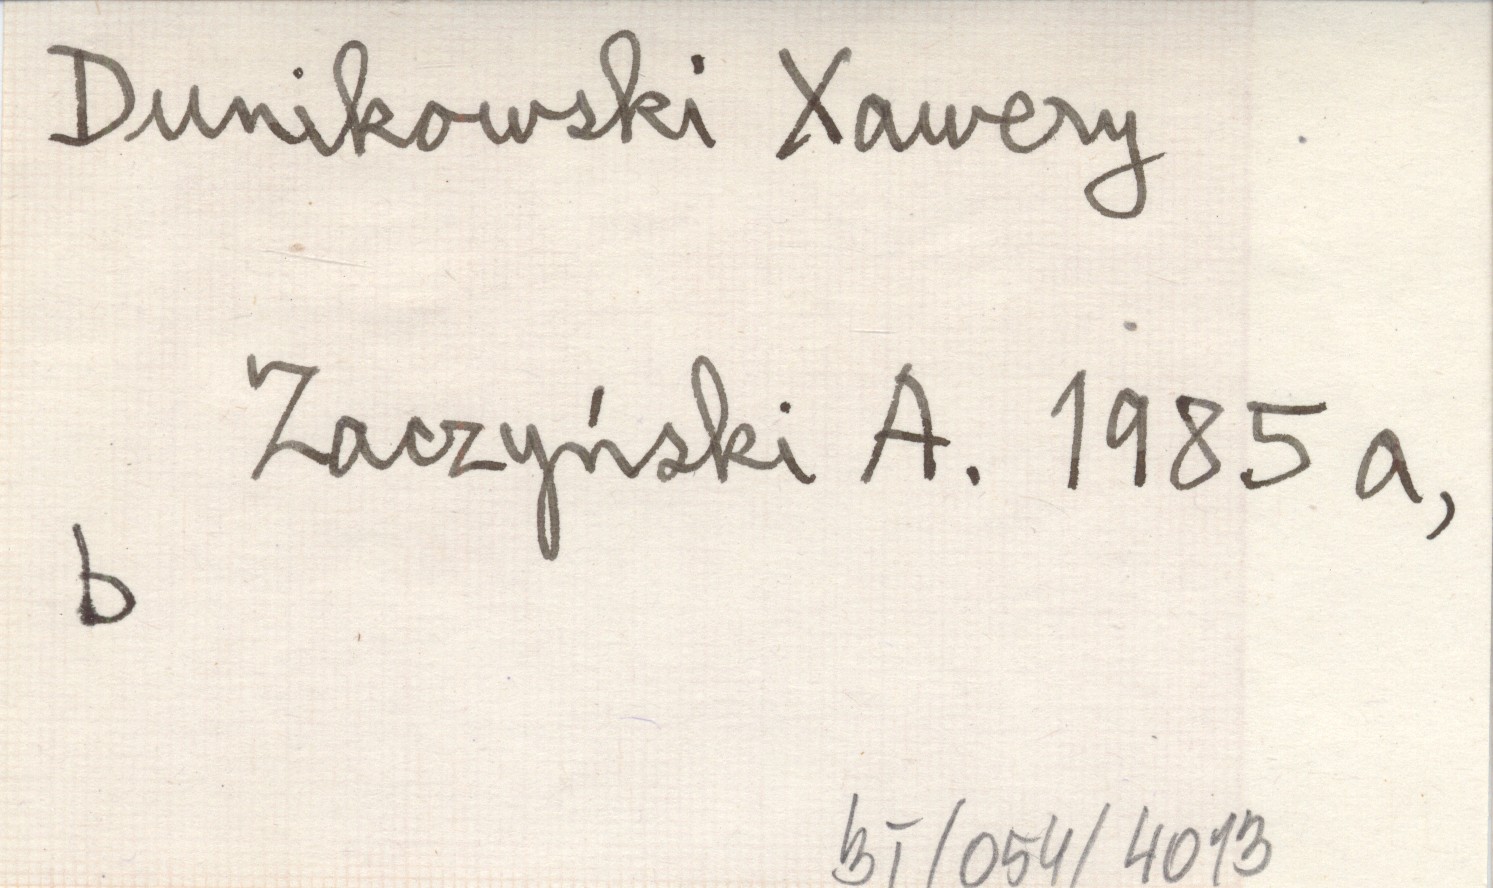 Dunikowski Xawery
Zaczyński A. 1985 a,
b
bI/054/4013